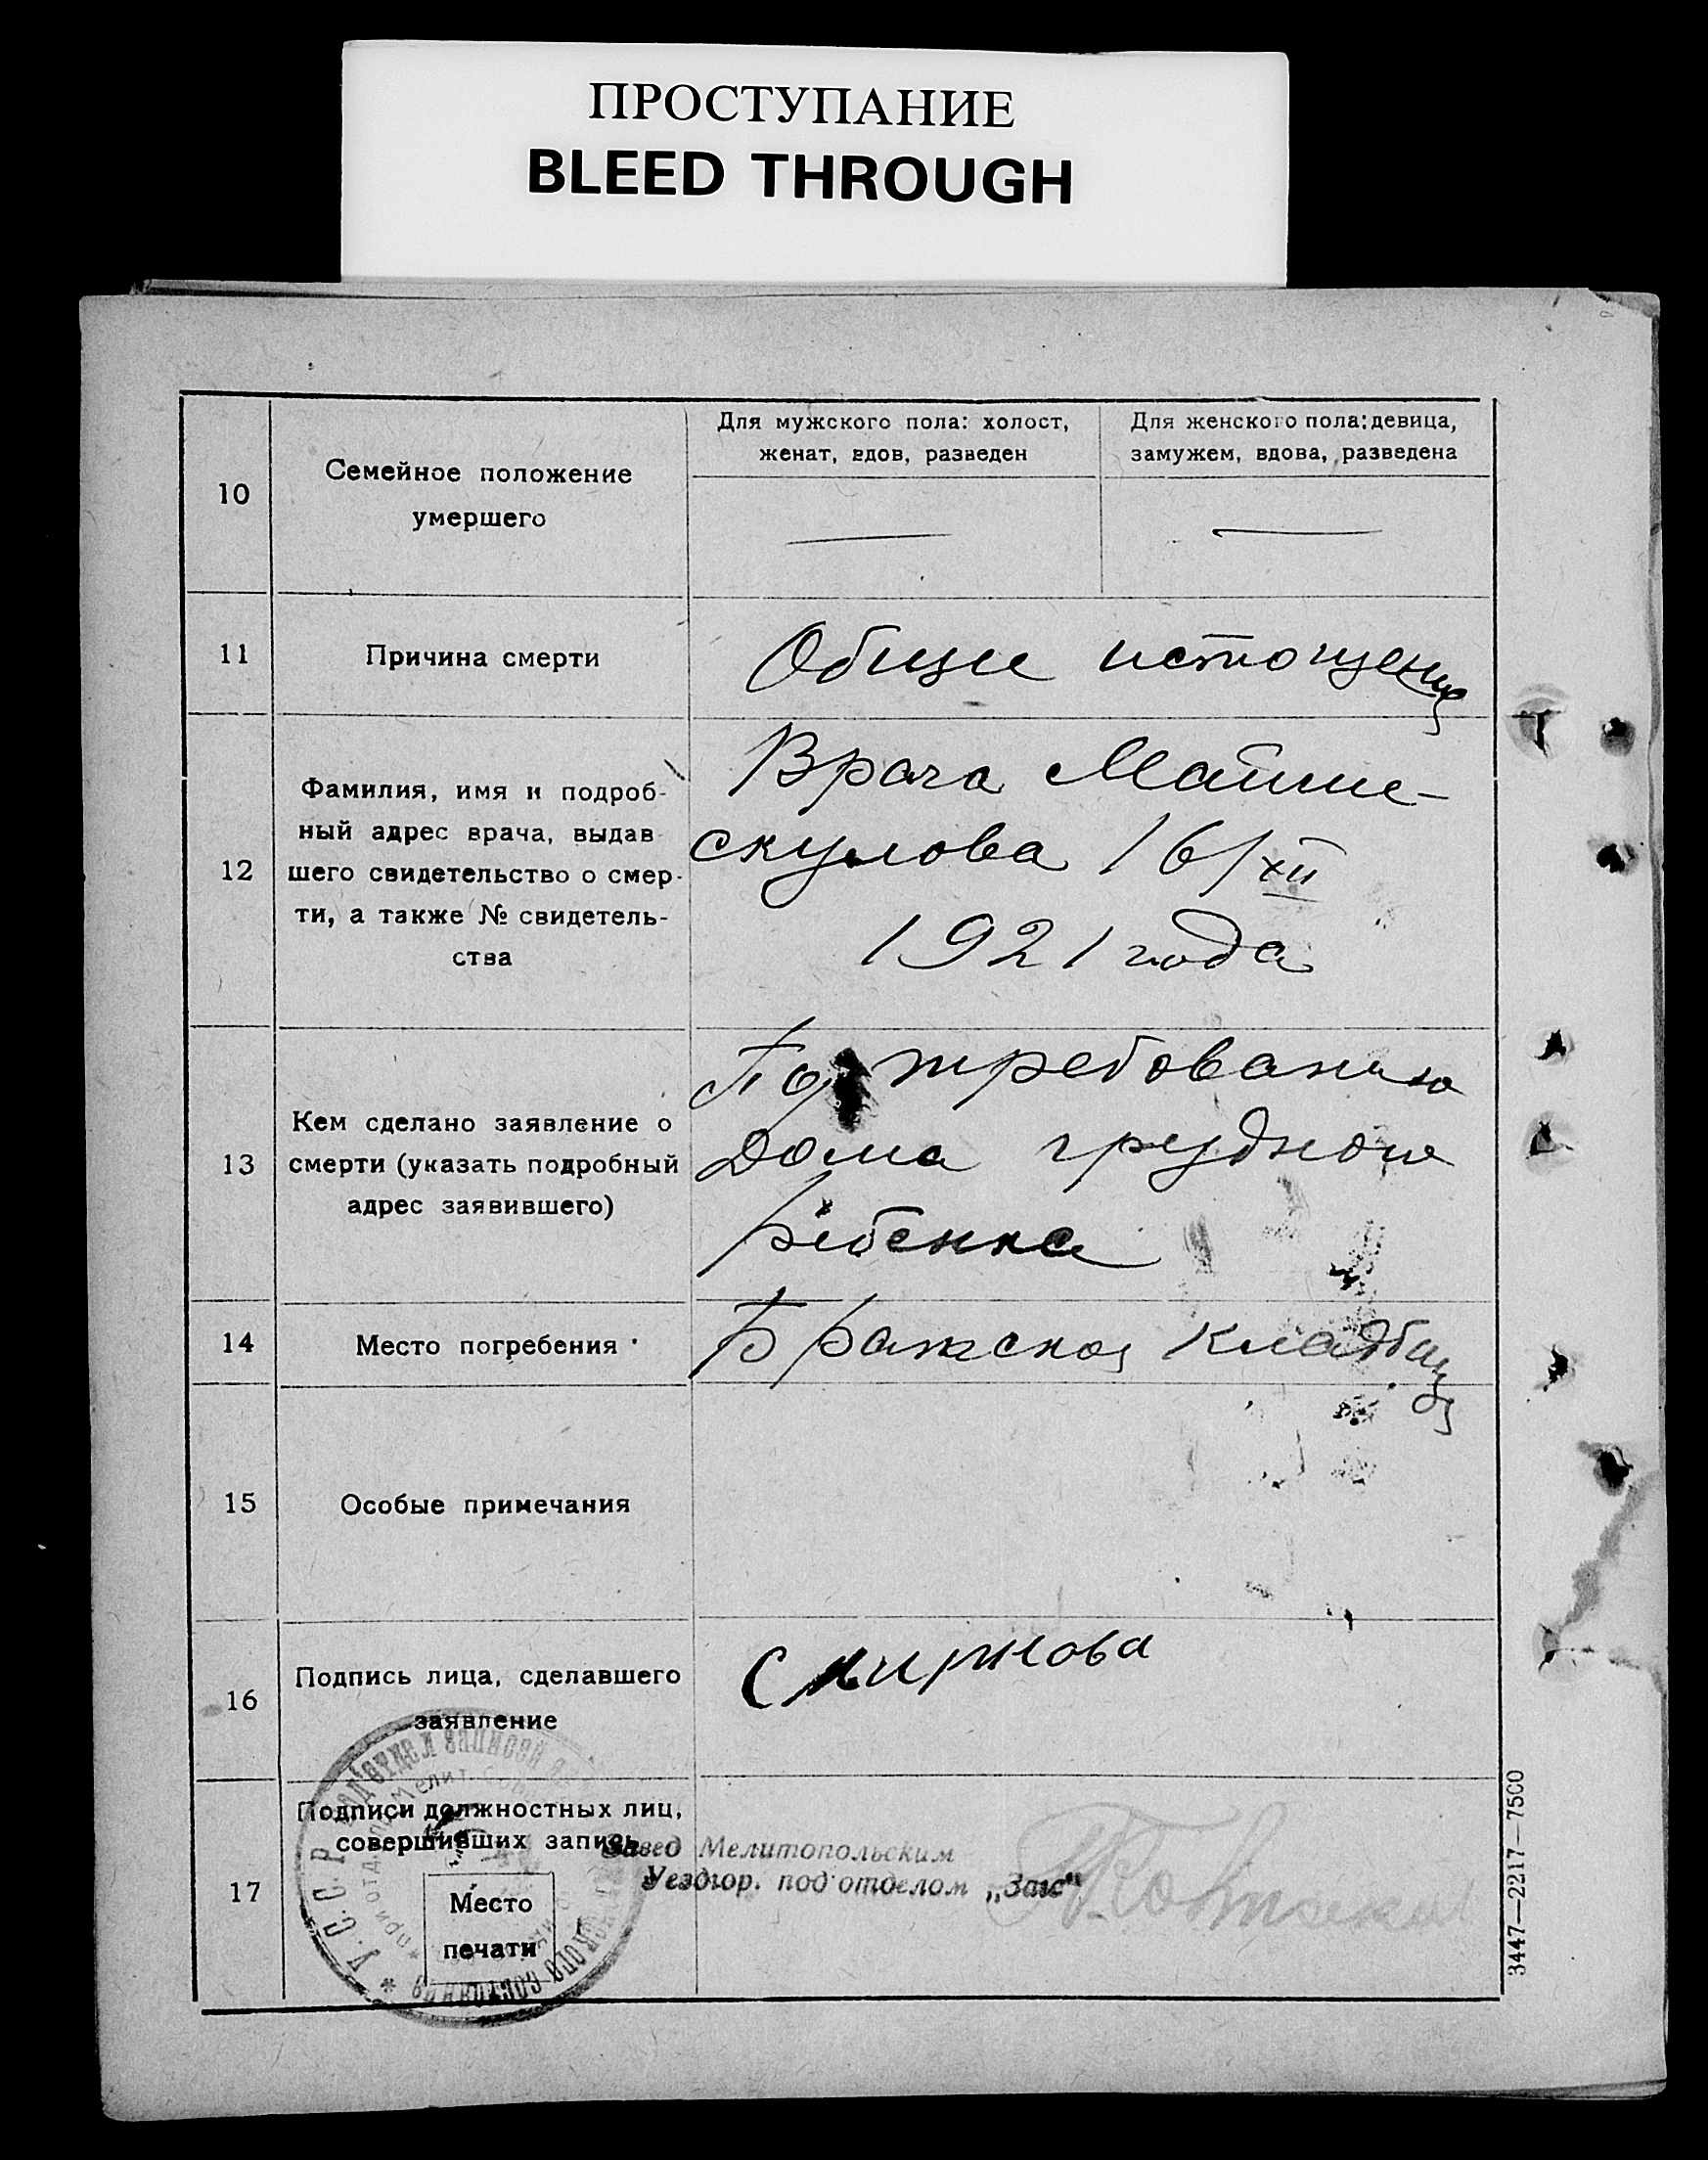 ПРОСТУПАНИЕ
BLEED THROUGH
10
Семейное положение
умершего
Для мужского пола: холост,
женат, вдов, разведен
Для женского пола: девица,
замужем, вдова, разведена
11
Причина смерти
Общие истощения
12
Фамилия, имя и подроб-
ный адрес врача, выдав
шего свидетельство о смер-
ти, а также № свидетель-
ства
Врача
скулова 16/XII
1921 года
13
Кем сделано заявление о
смерти (указать подробный
адрес заявившего)
По требованию
Дома грудного
ребенка
14
Место погребения
Братское кладбище
15
Особые примечания
16
Подпись лица, сделавшего
заявление
Смирнова
17
Подписи должностных лиц,
совершивших запись
Место
печати
Завед Мелитопольским
Уездгор. под'отделом „Загс"
У.С.С.Р.
3447—2217—7500